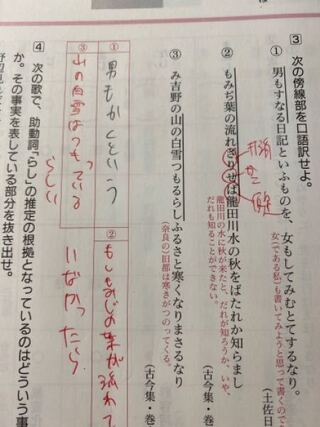 3 次の傍線部を口語訳せよ。
① 男もすなる日記といふものを、女もしてみむとてするなり。
女(である私)も書いてみようと思って書くので
(土佐日
② もみぢ葉の流れざりせば龍田川水の秋をばたれか知らまし
龍田川の水に秋が来たと、だれが知ろうか、いや、
だれも知ることができない。
(古今集・巻
③ み吉野の山の白雪つもるらしふるさと寒くなりまさるなり
(奈良の)旧都は寒さがつのってくる。
(古今集・巻
① 男もかくという
② もしもみじの葉が流れて
いなかったら
③ 山の白雪はつもっている
らしい
4 次の歌で、助動詞「らし」の推定の根拠となっているのはどういう事
か。その事実を表している部分を抜き出せ。